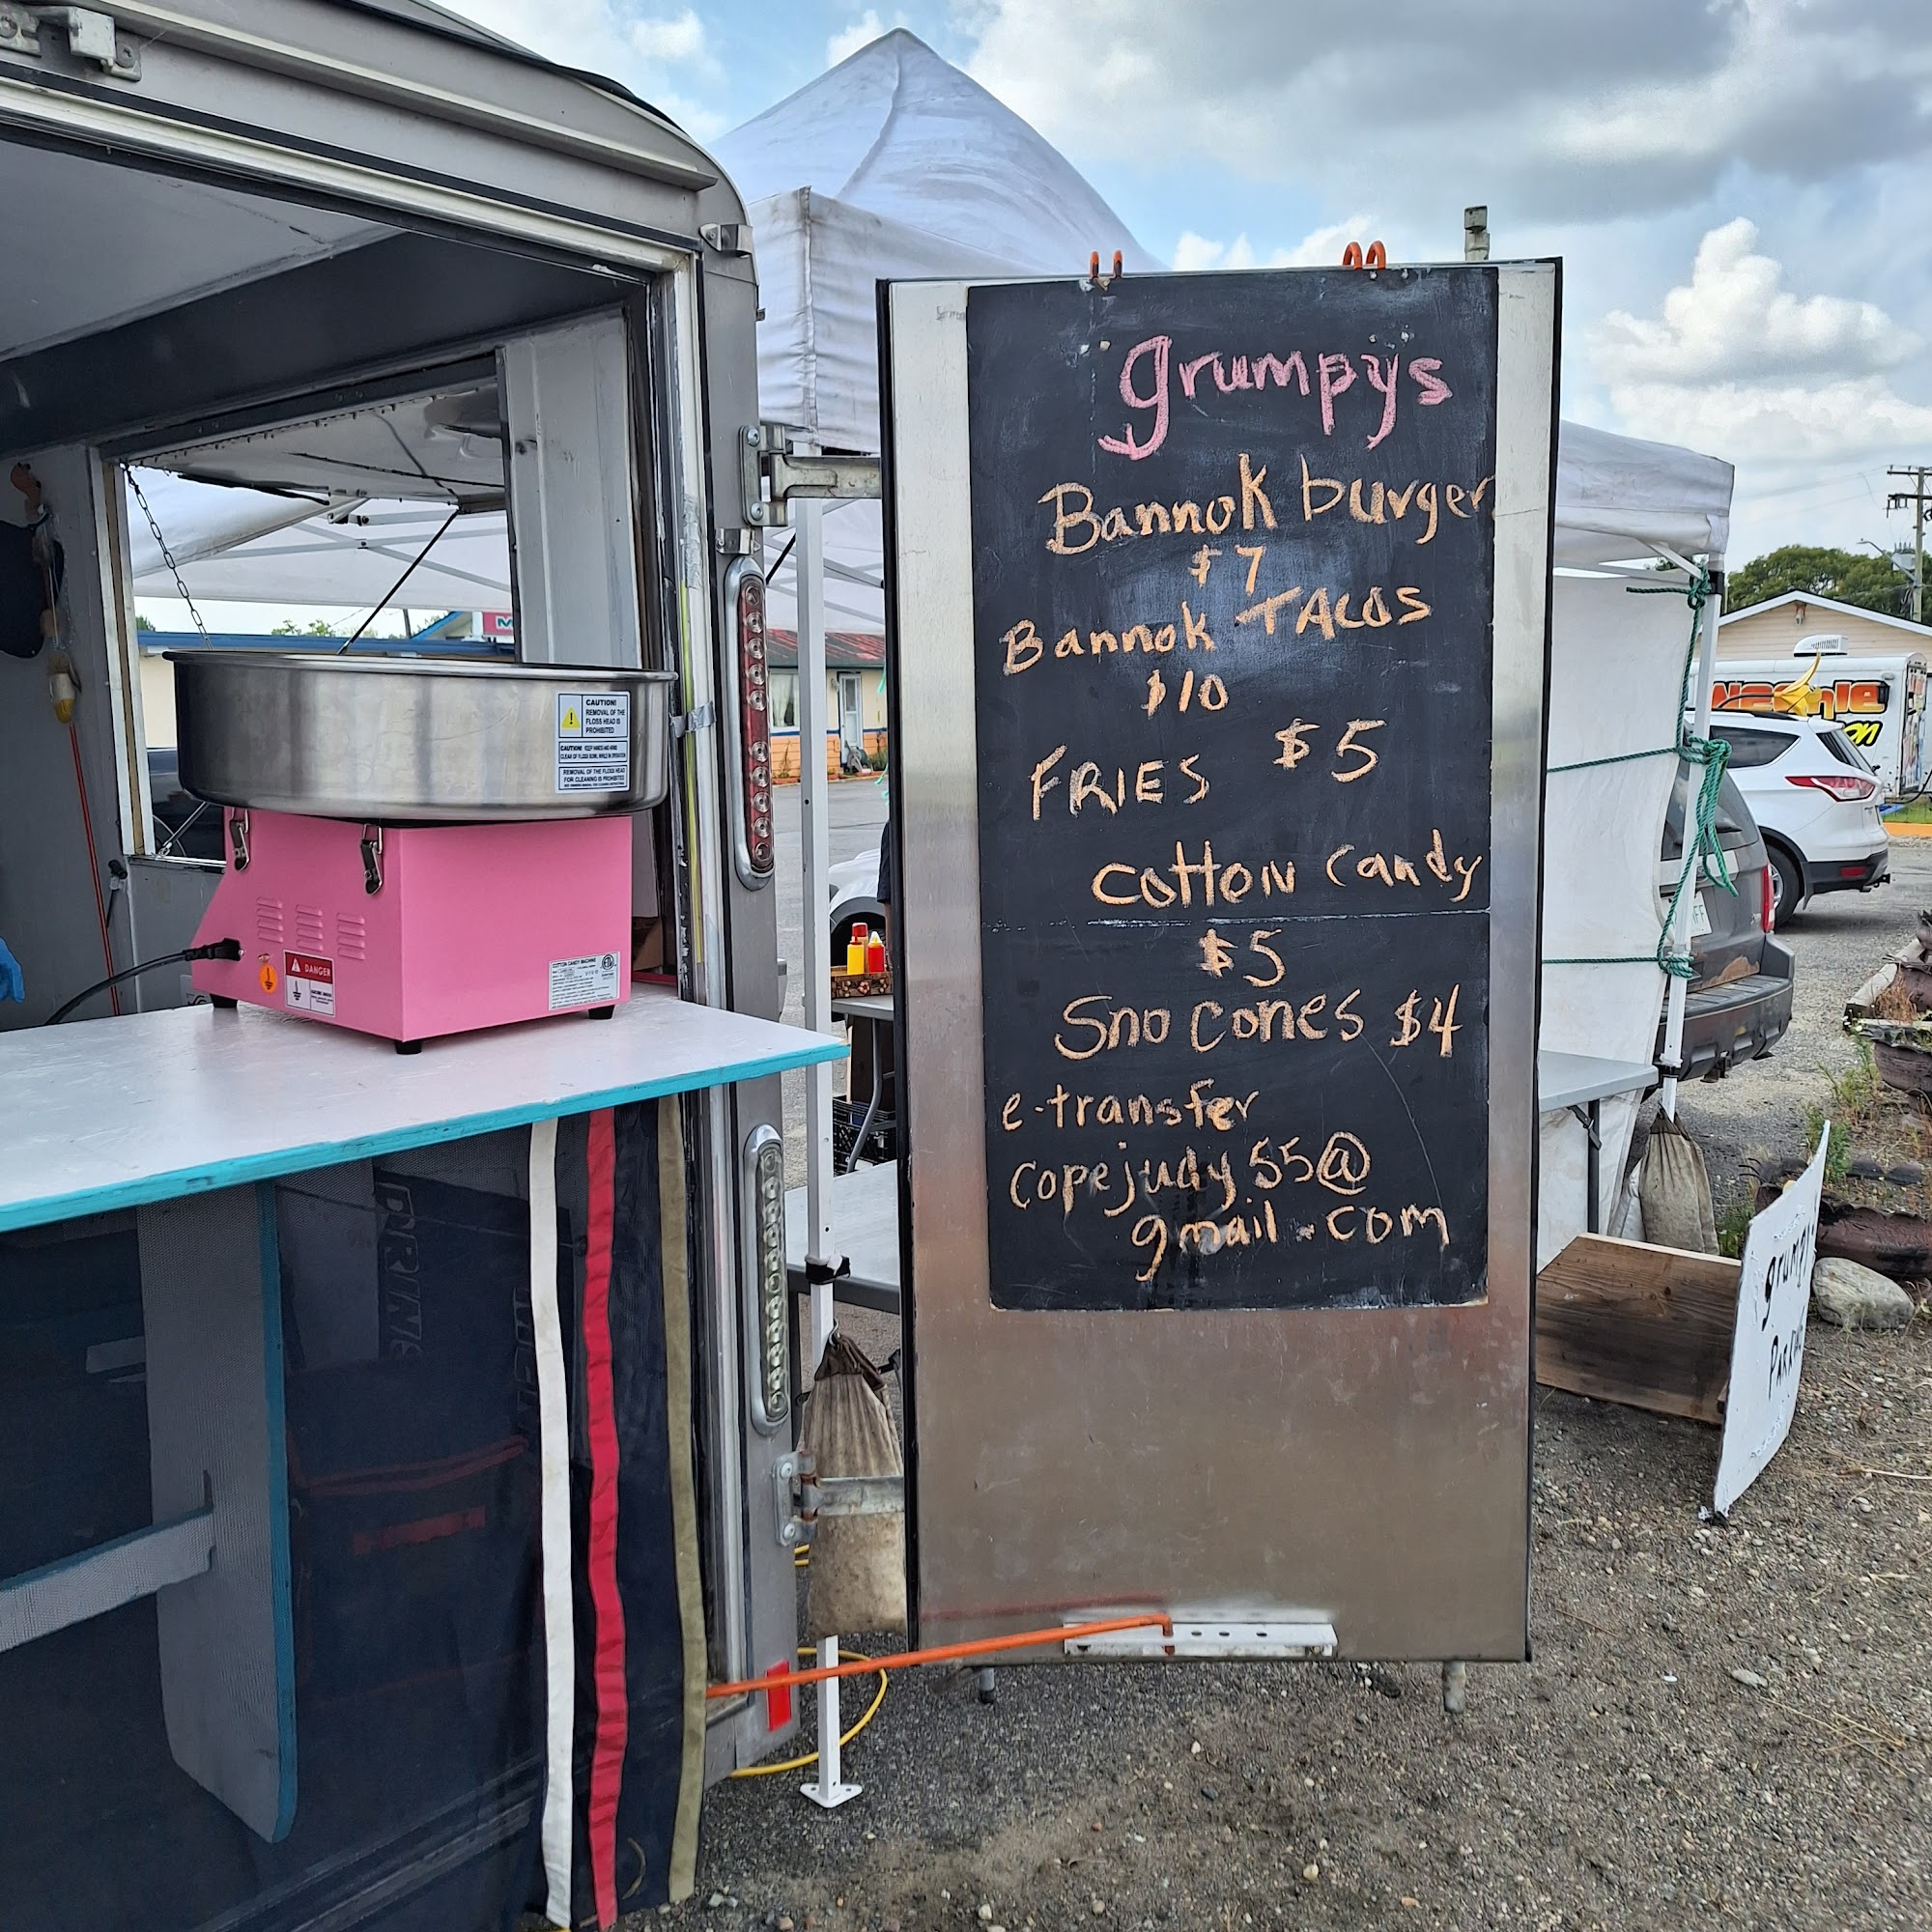 grumpys
Bannok burger
$7
Bannok TACOS
$10
FRIES $5
cotton candy
$5
Sno cones $4
e-transfer
copejudy55@
gmail.com
CAUTION!
REMOVAL OF THE
FLOSS HEAD IS
PROHIBITED
CAUTION! KEEP HANDS AND ARMS
CLEAR OF FLOSS BOWL WHILE IN OPERATION
REMOVAL OF THE FLOSS HEAD
FOR CLEANING IS PROHIBITED
DANGER
COTTON CANDY MACHINE